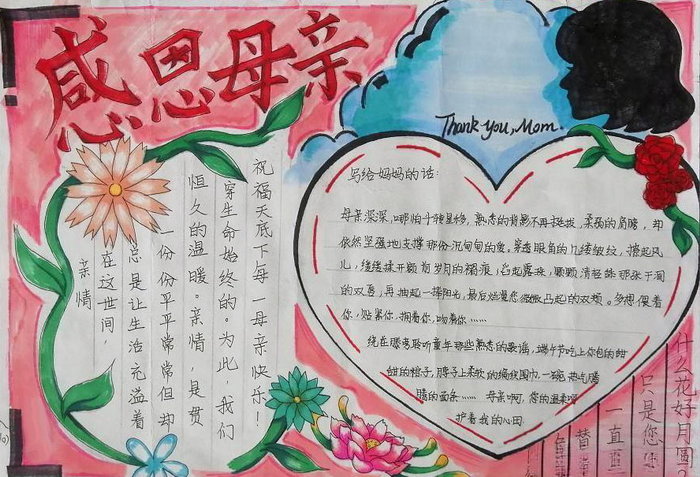 感恩母亲
Thank you, Mom.
亲情
在这世间,
总是让生活充溢着
一份份平平常常但却
恒久的温暖。亲情,是贯
穿生命始终的。为此,我们
祝福天底下每一母亲快乐!
写给妈妈的话:
母亲深深,哪怕斗转星移,熟悉的背影不再挺拔,柔弱的肩膀,却
依然坚强地支撑那份沉甸甸的爱。穿透眼角的几缕皱纹,撩起风
儿,缕缕揉开额前岁月的褶痕,舀起露珠,颗颗清轻 那张干涸
的双唇,再掬起一捧阳光,最后熨烫您微微凸起的双颊。多想偎着
你,贴紧你,拥着你,吻着你……
绕在膝旁聆听童年那些熟悉的歌谣,端午节吃上你包的甜
甜的粽子,脖子上柔软的编织围巾,一碗热气腾
腾的面条……母亲啊,您的温柔呵
护着我的心田
替
一直直
只是您
什么花好月圆?